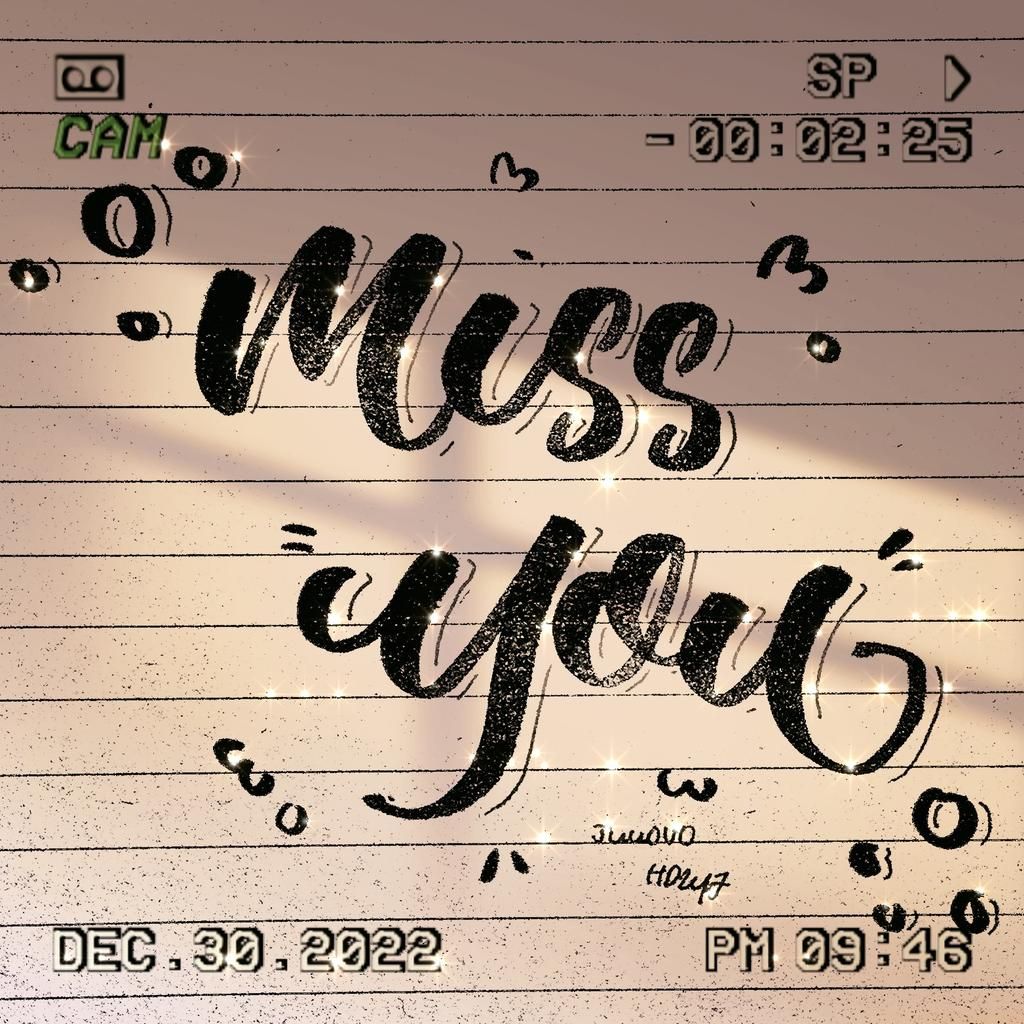 SP
CAM
-00:02:25
Miss
you
DEC.30.2022
PM 09:46